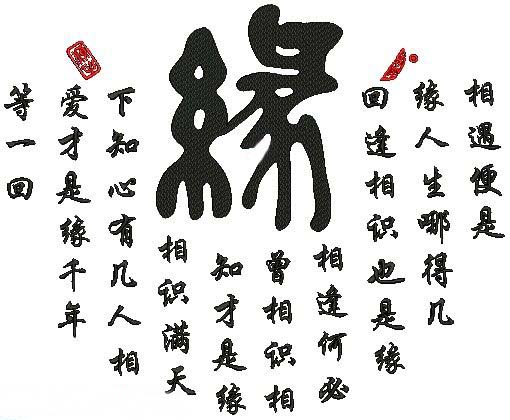 緣
相遇便是
缘人生哪得几
回逢相识也是缘
相逢何必
曾相识相
知才是缘
相识满天
下知心有几人相
爱才是缘千年
等一回